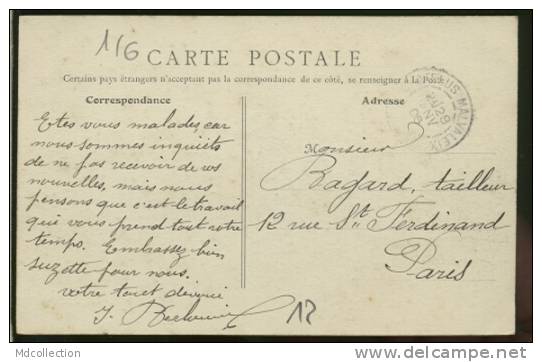 1/6
CARTE POSTALE
Certains pays étrangers n'acceptant pas la correspondance de ce côté, se renseigner à la Poste
Correspondance
Adresse
Etes vous malades car
nous sommes inquiets
de ne pas recevoir de vos
nouvelles, mais nous
pensons que c'est le travail
qui vous prend tout votre
temps. Embrassez bien
suzette pour nous.
votre tout dévoué
J.
Monsieur
Bagard, tailleur
12 rue St Ferdinand
Paris
MALVALEIX
29
12
MaDCollection
delcampe.net